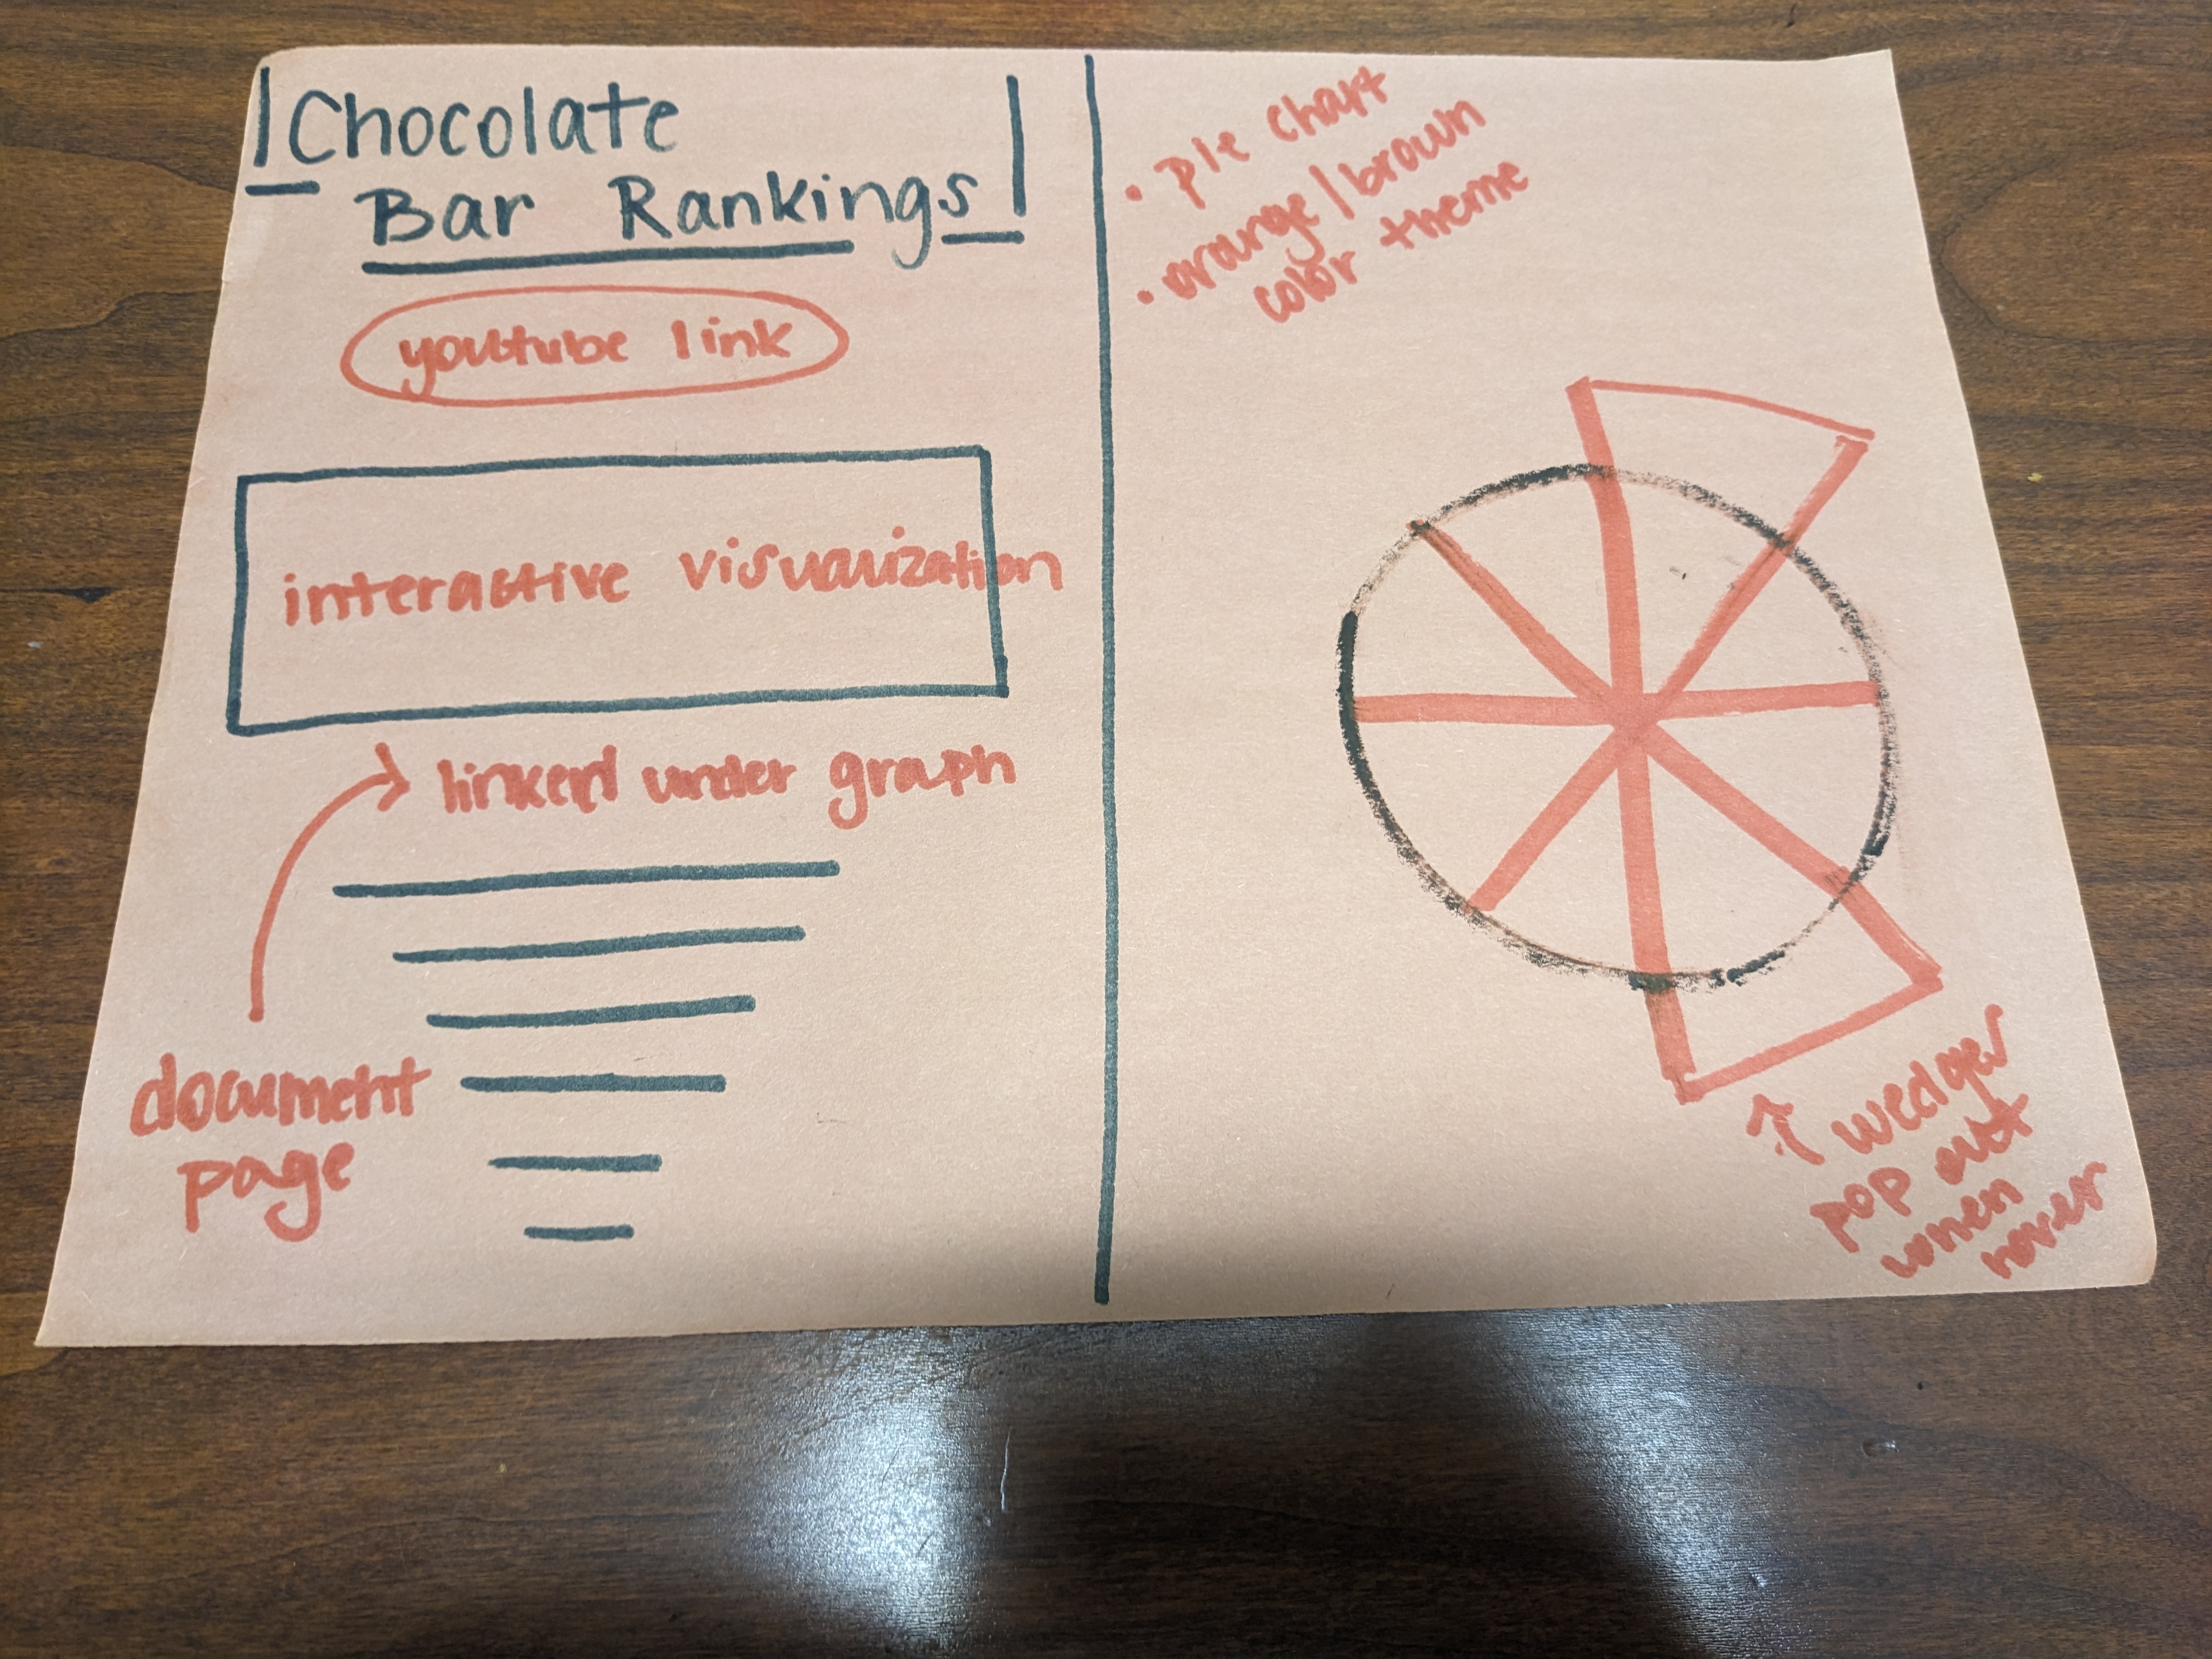 Chocolate
Bar Rankings
youtube link
interactive visualization
linked under graph
document
page
• pie chart
• orange/brown
color theme
↑ wedges
pop out
when
hover